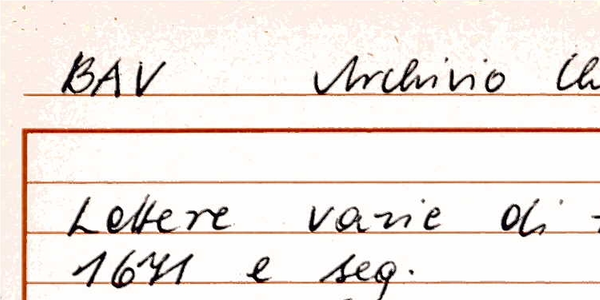 BAV Archivio Ch
Lettere varie di
1671 e seg.